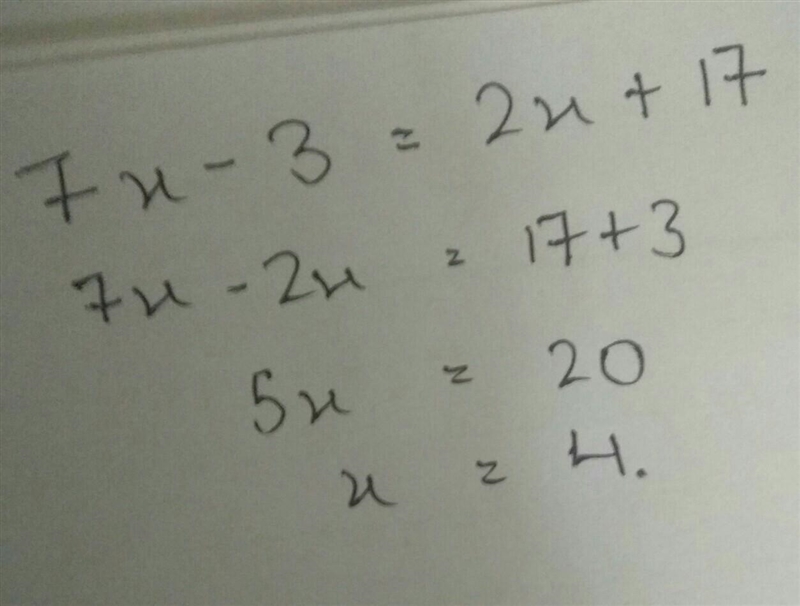 7x - 3 = 2x + 17
7x - 2x = 17 + 3
5x = 20
x = 4.